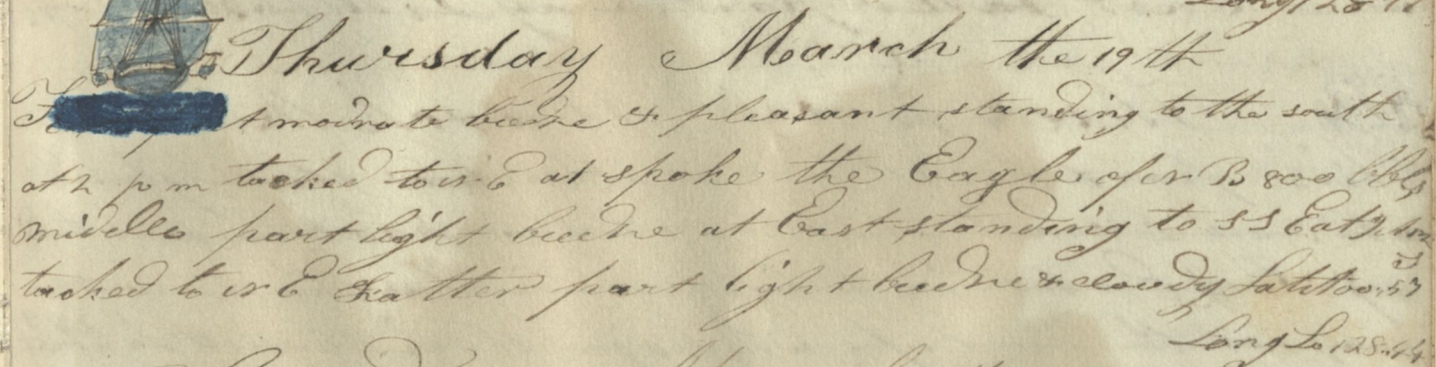 Thursday March the 19th
t modrate breeze & pleasant standing to the south
at 2 p m tacked to N E at spoke the Eagle of N B 800 bbls
middle part light breeze at East standing to S S E at
tacked to N E latter part light breeze & cloudy Latitoo 57
Long to 128-44